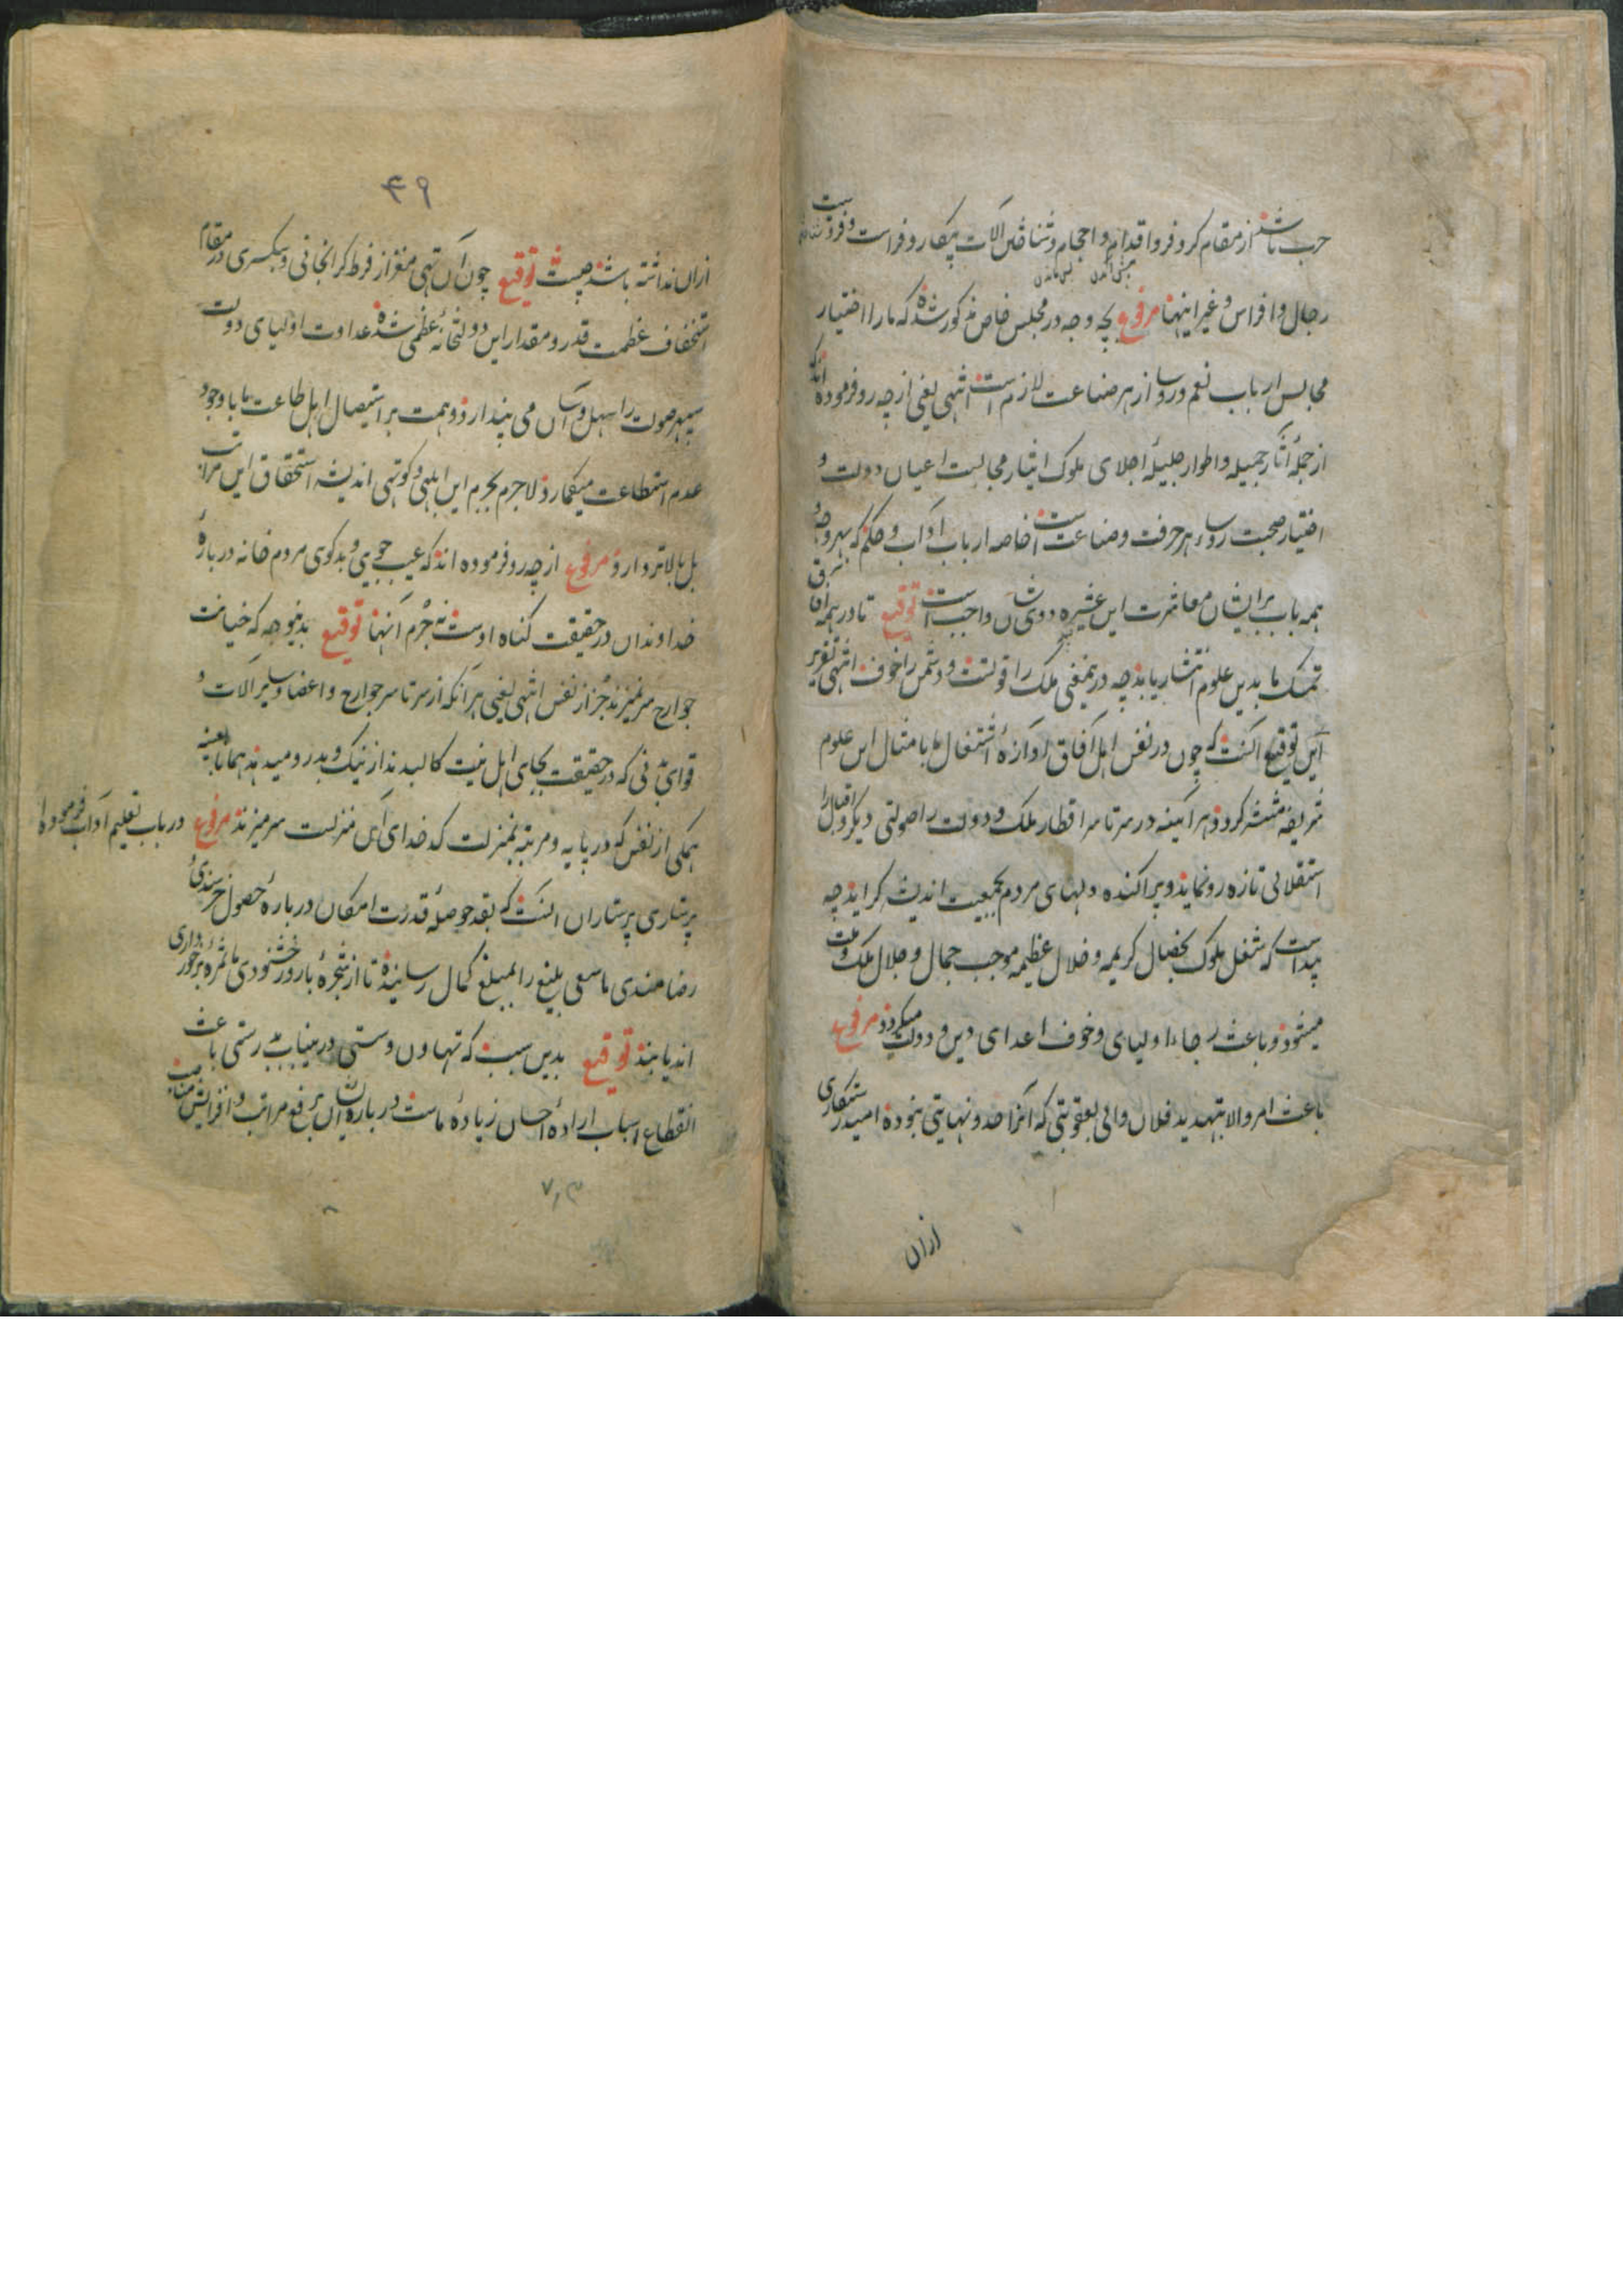 حرب باشند از مقام کر و فر و اقدام و احجام و تناقض آلات پیکار و فراست و
پیش آمدن پس ماندن
رجال و افراس و غیر اینها مرفوع بچه وجه در مجلس خاص مذکور شده که ما را اختیار
مجالس ارباب نعم و روسا از هر صناعت لازم است انتهی یعنی از چه رو فرموده اند که
از جمله آثار جمیله و اطوار جلیله اجلای ملوک ایثار مجالست اعیان دولت و
اختیار صحبت روساء هر حرفت و صناعت است خاصه ارباب آداب و حکم که بهر وجه و
همه باب بر ایشان معاشرت این عشیره ذوی شان واجب است توقیع تا در همه آفاق
تمسک ما بدین علوم انتشار یابد چه در معنی ملک را قوتست و دشمن را خوف انتهی تقریر
این توقیع آنست که چون در نفس اهل آفاق آوازه اشتغال ما بامثال این علوم
شریفه منتشر گردد هر آینه در سرتاسر اقطار ملک و دولت را صولتی دیگر و اقبال را
استقلالی تازه رو نماید و پراکنده دلهای مردم بجمعیت اندیشه گراید چه
پیداست که شغل ملوک بخصال کریمه و خلال عظیمه موجب جمال و جلال ملک و ملت
میشود و باعث رجاء اولیای و خوف اعدای دین و دولت میگردد مرفوع
باعث امر والا بتهدید فلان والی بعقوبتی که آنرا حد و نهایتی نبوده امید رستگاری
ازان
۴۹
ازان نداشته باشد چیست توقیع چون آن تهی مغز از فرط گرانجانی و سبکسری در مقام
استخفاف عظمت قدر و مقدار این دولتخانه عظمی شده عداوت اولیای دولت
سپهر صولت را سهل و آسان می پندارد و همت بر استیصال اهل طاعت ما با وجود
عدم استطاعت میگمارد لاجرم بجرم این ابلهی و کوتهی اندیشه استحقاق این مراتب
بل بالاتر دارد مرفوع از چه رو فرموده اند که عیب جویی و بدگوی مردم خانه درباره
خداوندان در حقیقت گناه اوست نه جرم آنها توقیع بدینوجه که خیانت
جوارح سر نمیزند جز از نفس انتهی یعنی هرآنکه از سر تا سر جوارح و اعضا و سایر آلات و
قوای بدنی که در حقیقت بجای اهل بیت کالبدند از نیک و بد رو میدهد همانا بعینه
همگی از نفس که در پایه و مرتبه بمنزلت کدخدای آن منزلست سر میزند مرفوع در باب تعلیم آداب فرموده
پرستاری پرستاران آنست که بقدر حوصله قدرت امکان درباره حصول خرسندی و
رضامندی ما سعی بلیغ را بمبلغ کمال رسانیده تا از شجره بارور خشنودی ما ثمره برخورداری
اند یابند توقیع بدین سبب که تهاون و سستی درینباب بدرستی باعث
انقطاع اسباب اراده احسان زیاده ماست درباره ایشان برفع مراتب و افزایش مناصب